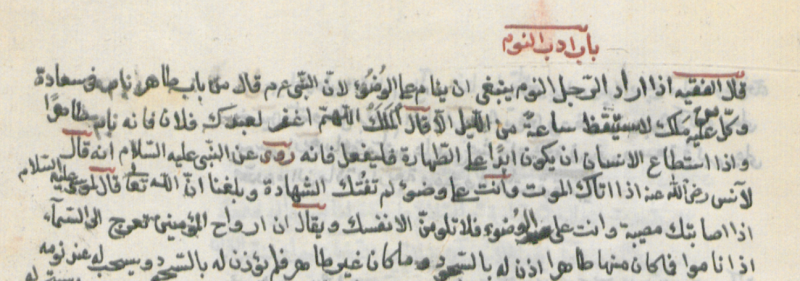 باب ادب النوم
قال الفقيه اذا اراد الرجل النوم ينبغى ان ينام على الوضوء لان النبى عم قال من بات طاهرا نام فى سعادة
وكل عليه ملك لا يستيقظ ساعة من الليل الا قال الملك اللهم اغفر لعبدك فلان فانه نام طاهرا
واذا استطاع الانسان ان يكون ابدا على الطهارة فليفعل فانه روى عن النبى عليه السلام انه قال
لانس رضى الله عنه اذا اتاك الموت وانت على وضوء لم تفتك الشهادة وبلغنا ان الله تعالى قال لموسى عليه السلام
اذا اصابتك مصيبة وانت على الوضوء فلا تلومن الا نفسك ويقال ان ارواح المؤمنين تعرج الى السماء
اذا ناموا فما كان منها طاهرا اذن له بالسجود وما كان غير طاهر فلم يؤذن له بالسجود ويستحب له عند نومه